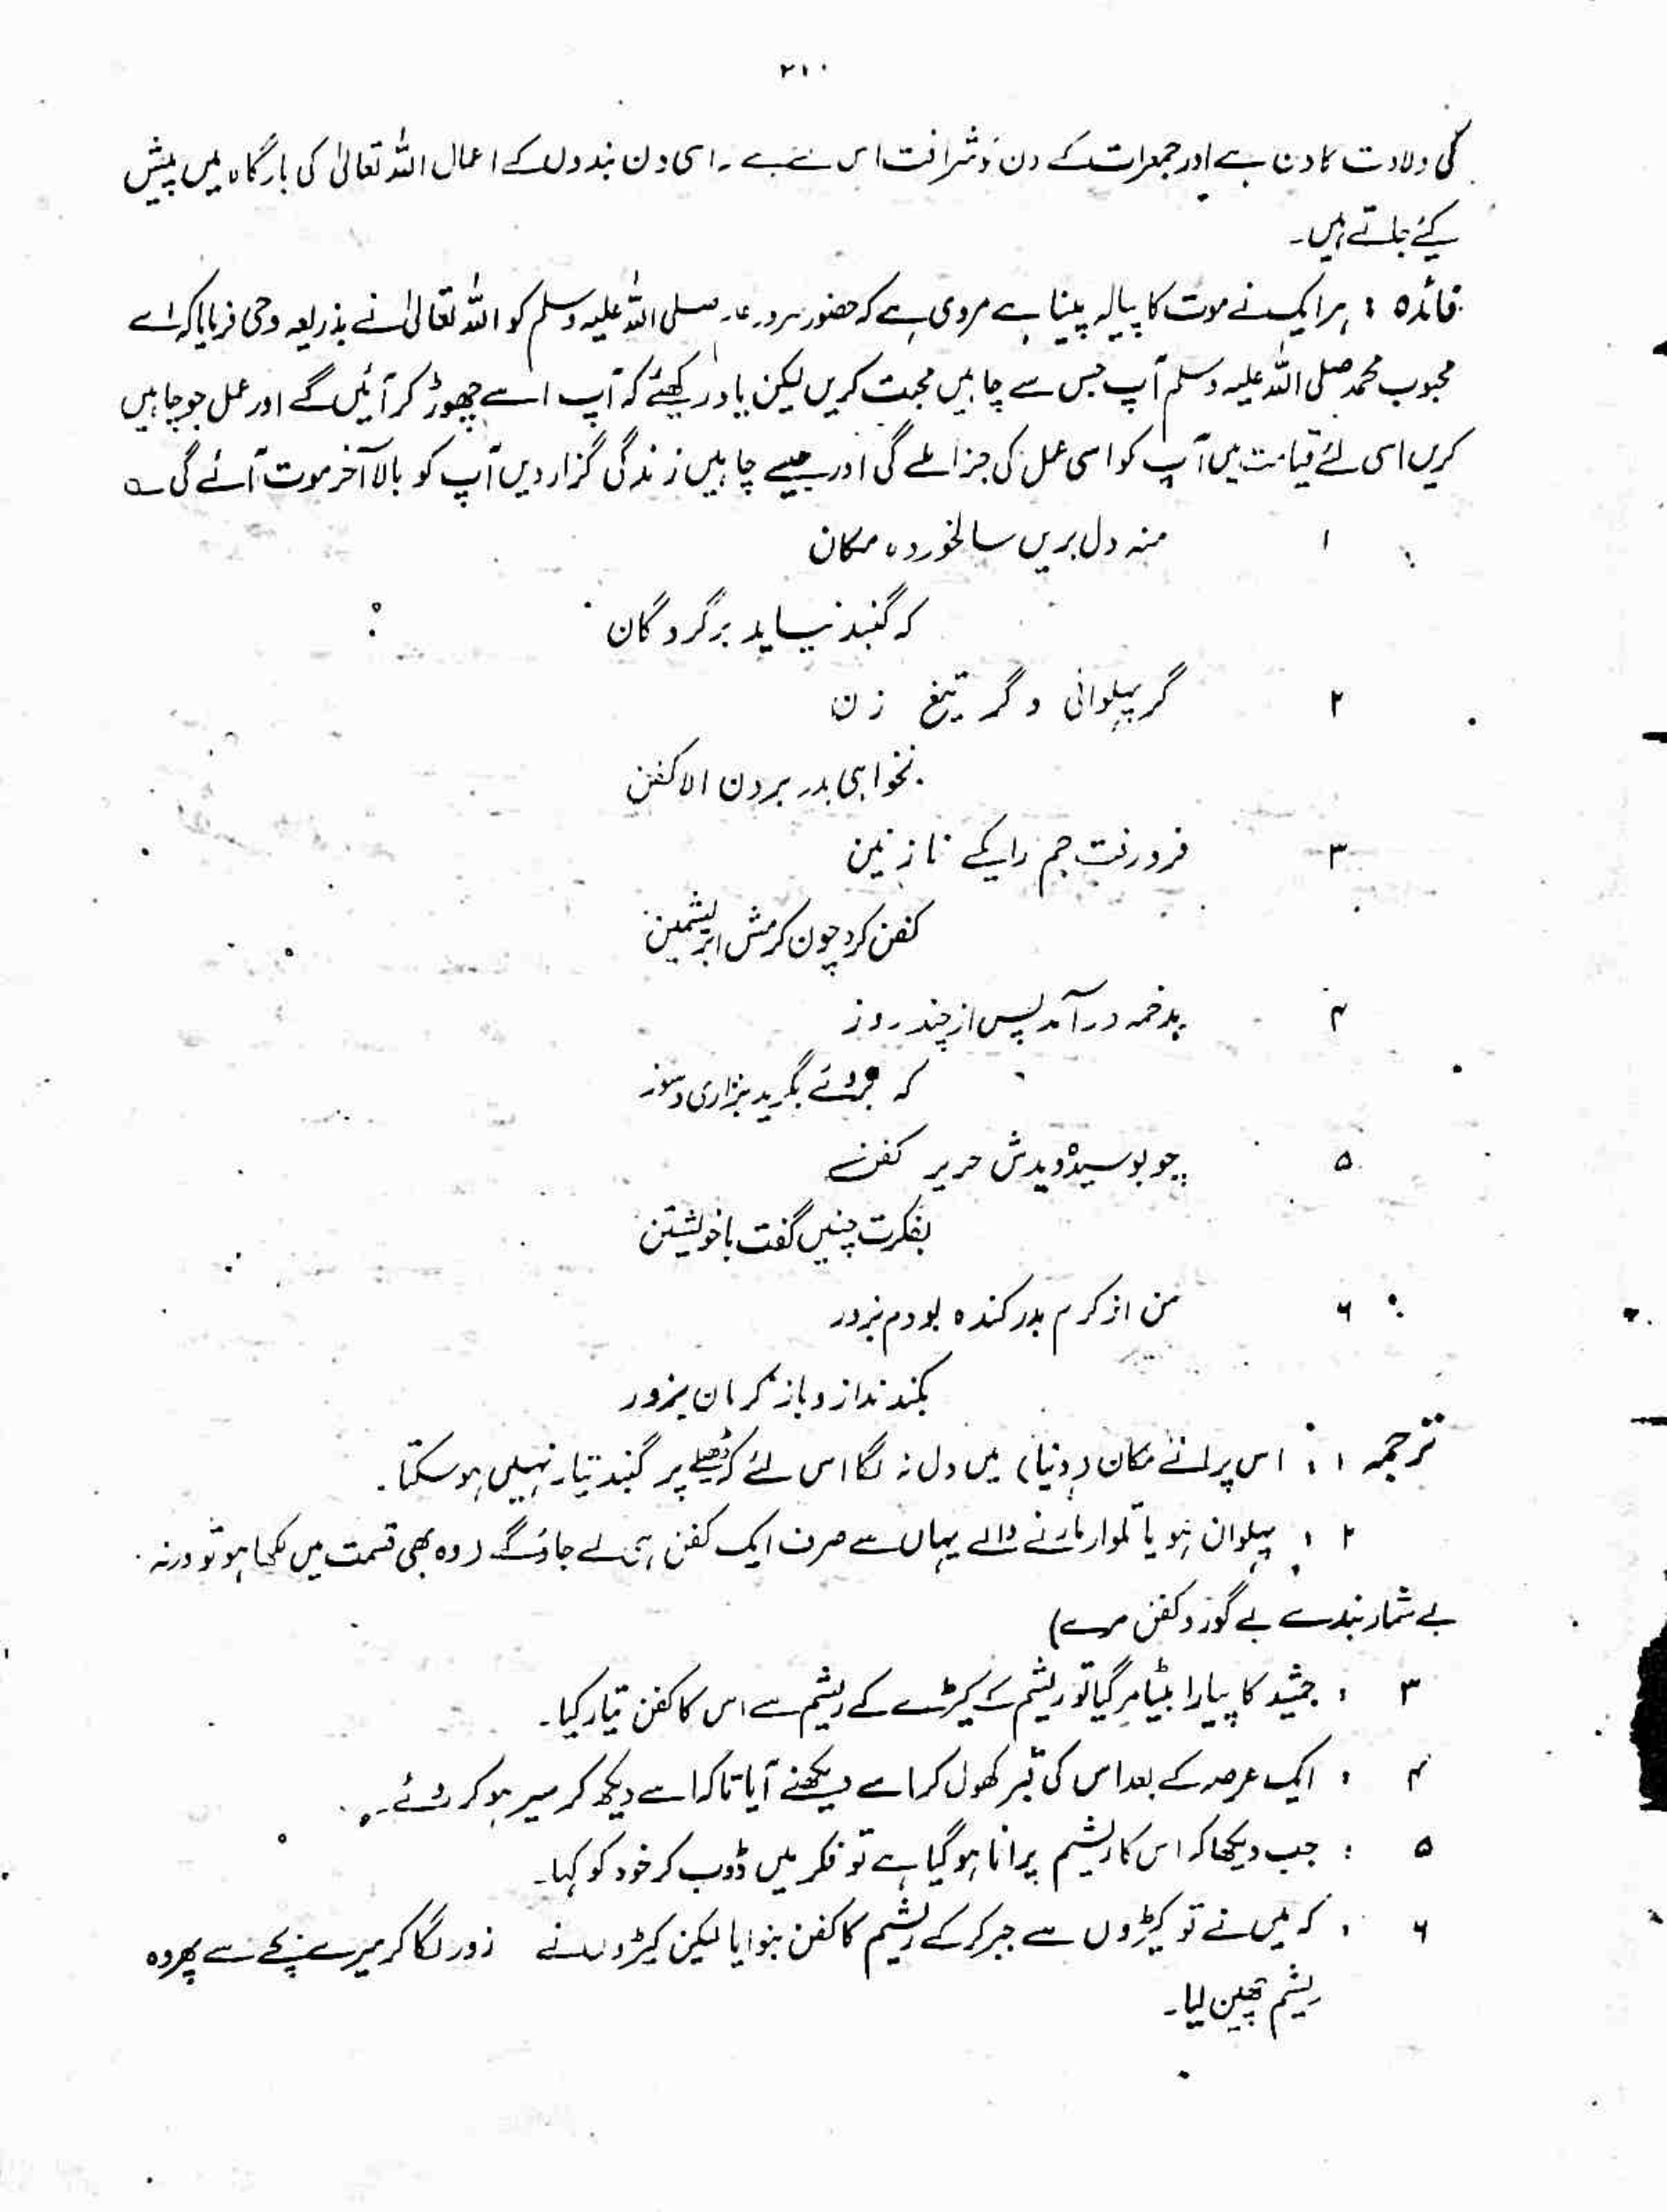 ۲۱۰
کی ولادت کا دن ہے اور جمعرات کے دن کو شرافت اس لئے ہے۔ اسی دن بندوں کے اعمال اللہ تعالیٰ کی بارگاہ میں پیش
کئے جاتے ہیں۔
فائدہ : ہر ایک نے موت کا پیالہ پینا ہے مروی ہے کہ حضور سرور عالم صلی اللہ علیہ وسلم کو اللہ تعالیٰ نے بذریعہ وحی فرمایا کہ اے
محبوب محمد صلی اللہ علیہ وسلم آپ جس سے چاہیں محبت کریں لیکن یاد رکھئے کہ آپ اسے چھوڑ کر آئیں گے اور عمل جو چاہیں
کریں اسی لئے قیامت میں آپ کو اسی عمل کی جزا ملے گی اور جیسے چاہیں زندگی گزار دیں آپ کو بالآخر موت آئے گی ؎
۱ منہ دل بریں سالخوردہ مکان
کہ گنبد نیاید برگردگان
۲ گر پہلوانی و گر تیغ زن
نخواہی بدر بردن الا کفن
۳ فرو رفت جم را یکے نازنین
کفن کرد چون کرمش ابریشمین
۴ بدخمہ درآمد پس از چند روز
کہ بروئے بگرید بزاری و سوز
۵ چو بوسیدہ دیدش حریر کفنے
بفکرت چنیں گفت باخویشتن
۶ من از کرم بدر کندہ بودم بزور
بکندند ازو باز کرمان بزور
ترجمہ ۱ : اس پرانے مکان (دنیا) میں دل نہ لگا اس لئے کہ ڈھیلے پر گنبد تیار نہیں ہو سکتا۔
۲ : پہلوان ہو یا تلوار مارنے والے یہاں سے صرف ایک کفن ہی لے جاؤ گے (وہ بھی قسمت میں لکھا ہو تو ورنہ
بے شمار بندے بے گور و کفن مرے)
۳ : جمشید کا پیارا بیٹا مر گیا تو ریشم کے کیڑے کے ریشم سے اس کا کفن تیار کیا۔
۴ : ایک عرصہ کے بعد اس کی قبر کھول کر اسے دیکھنے آیا تاکہ اسے دیکھ کر سیر ہو کر روئے۔
۵ : جب دیکھا کہ اس کا ریشم پرانا ہو گیا ہے تو فکر میں ڈوب کر خود کو کہا۔
۶ : کہ میں نے تو کیڑوں سے جبر کر کے ریشم کا کفن بنوایا لیکن کیڑوں نے زور لگا کر میرے بچے سے پھر وہ
ریشم چھین لیا۔